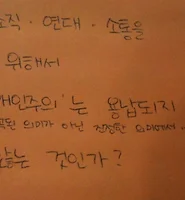 조직 · 연대 · 소통을
위해서
개인주의'는 용납되지
의미가 아닌 진정한 의미에서
않는 것인가?